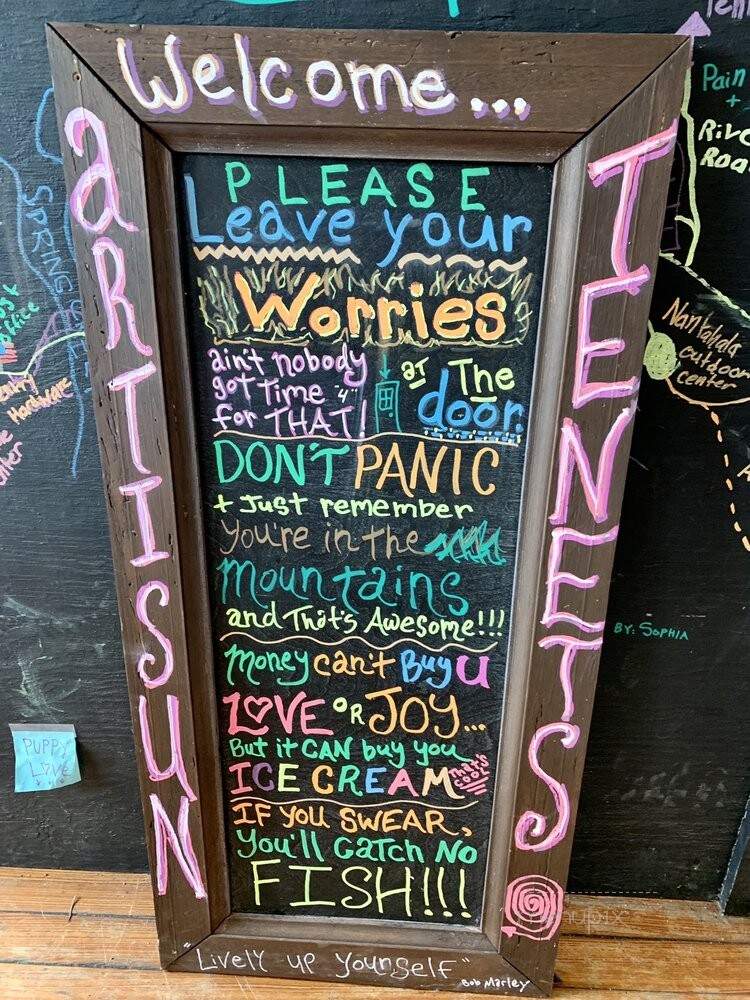 Welcome...
ARTISUN
TENETS
PLEASE
Leave your
Worries
ain't nobody
got Time "4"
for THAT!
AT The
door.
DON'T PANIC
+ Just remember
you're in the
mountains
and That's Awesome!!!
Money can't Buy U
LOVE OR JOY...
But it CAN buy you
ICE CREAM THAT'S COOL
IF YOU SWEAR,
You'll Catch No
FISH!!!
"Lively up Yourself"
Bob Marley
PUPPY
LOVE
SPRING
Hardware
Pain
+
Rive
Roa
Nantahala
outdoor
center
BY: SOPHIA